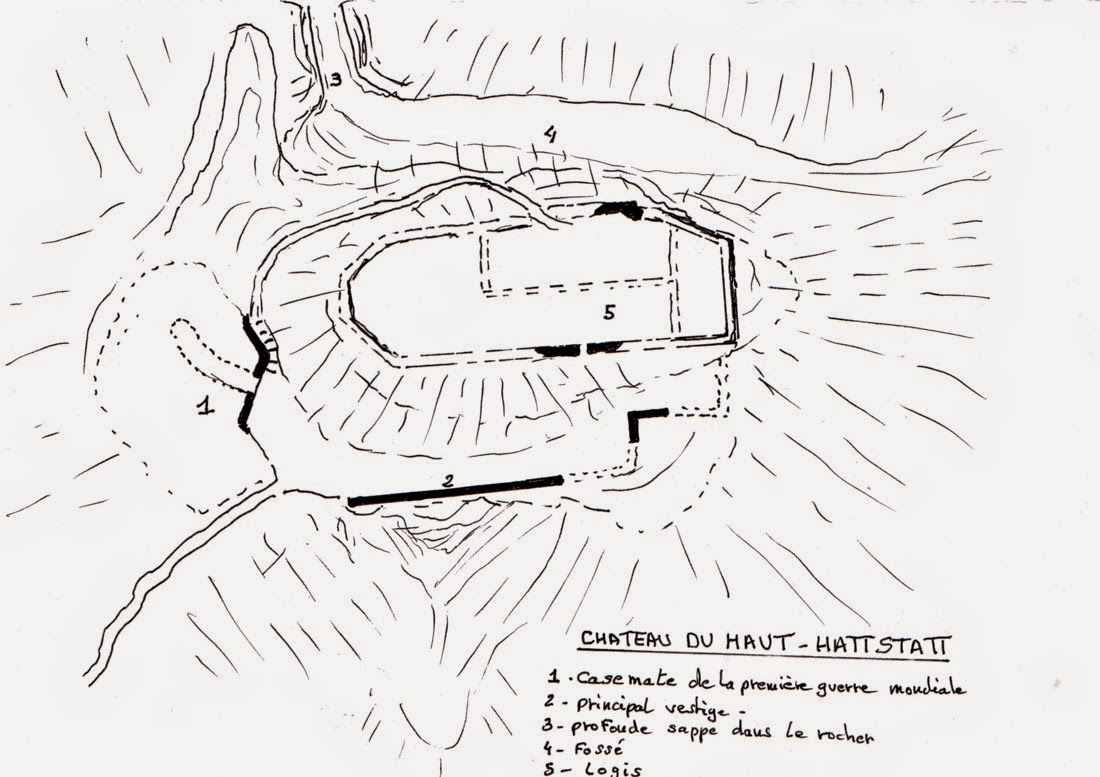 3
4
5
1
2
CHATEAU DU HAUT-HATTSTATT
1. Casemate de la première guerre mondiale
2- principal vestige-
3- profonde sappe dans le rocher
4- Fossé
5- Logis